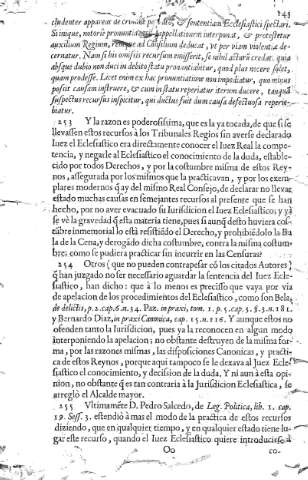 141
cludenter appareat de crimine
& sententiam Ecclesiastici spectari.
Si inique, notoriè pronunciaverit appellationem interpona, & protestetur
auxilium Regium, remque ad Consilium deducat, ut per viam violentiæ de-
cernatur. Nam si his omissis recursum emisserit, se nihil acturū credat. quia
absque dubio non duci in debito statu provocabitur, quod plus nocere solet,
quam prodesse. Licet enim ex hac pronunciatione non impediatur, quo minus
possit causam instruere, & cum in statu reperiatur iterum ducere, tanquā
suspectus recursus inspicitur, qui ductus fuit dum causa defectuosa reperie-
batur.
253 Y la razon es poderosissima, que es la ya tocada, de que si se
llevassen estos recursos à los Tribunales Regios sin averse declarado
Iuez el Eclesiastico era directamente conocer el Iuez Real la compe-
tencia, y negarle al Eclesiastico el conocimiento de la duda, estable-
cido por todos Derechos, y por la costumbre misma de estos Rey-
nos, assegurada por los mismos que la practicavan, y por los exem-
plares modernos q̄ ay del mismo Real Consejo, de declarar no llevar
estado muchas causas en semejantes recursos al presente que se han
hecho, por no aver evacuado su Iurisdicion el Iuez Eclesiastico; y yà
se vè la gravedad q̄ esta materia tiene, pues si aunq̄ desto huviera cos-
tūbre immemorial lo està resistiēdo el Derecho, y prohibiēdolo la Bu
la de la Cena, y derogādo dicha costumbre, contra la misma costum-
bre; como se pudiera practicar sin incurrir en las Censuras?
254 Otros (que no pueden contrapesar cō los citados Autores)
q̄ han juzgado no ser necessario aguardar la sentencia del Iuez Ecle-
siastico, han dicho: que à lo menos es preciso que vaya por via
de apelacion de los procedimientos del Eclesiastico, como son Bela,
de delictis, p. 2. cap. 6. n. 34. Paz. in praxi, tom. 1. p. 5. cap. 5. §. 3. n. 181.
y Bernardo Diaz, in praxi Canonica, cap. 115. n. 16. Y aunque estos no
ofenden tanto la Iurisdicion, pues ya la reconocen en algun modo
interponiendo la apelacion; no obstante destruyen de la misma for-
ma, por las razones mismas, las disposiciones Canonicas, y practi-
ca de estos Reynos, porque aqui tampoco se le dexava al Iuez Ecle-
siastico el conocimiento, y decision de la duda. Y ni aun à esta opi-
nion, no obstante q̄ es tan contraria à la Iurisdicion Eclesiastica, se
arreglò el Alcalde mayor.
255 Vltimamēte D. Pedro Salcedo, de Leg. Politica, lib. 1. cap.
19. Sess. 3. estendiò à mas el modo de la practica de estos recursos
diziendo, que en qualquier tiempo, y en qualquier estado tiene lu-
gar este recurso, quando el Iuez Eclesiastico quiere introducirse à
Oo
co-